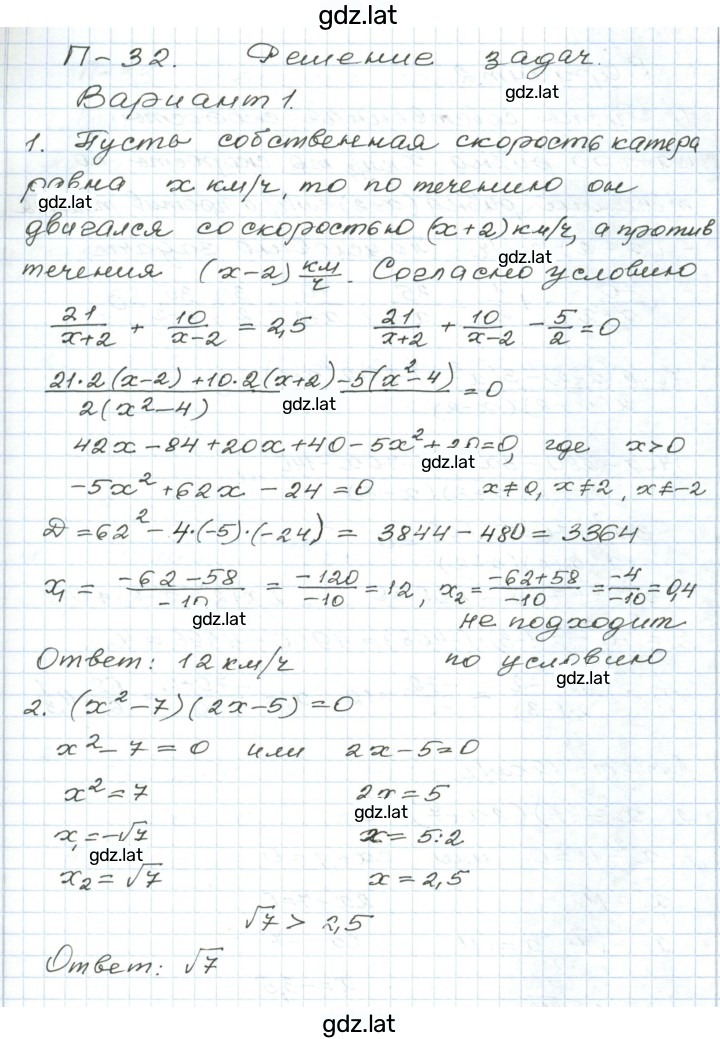 gdz.lat
П-32. Решение задач.
gdz.lat
Вариант 1.
1. Пусть собственная скорость катера
равна x км/ч, то по течению он
gdz.lat
двигался со скоростью (x+2) км/ч, а против
gdz.lat
течения (x-2) км/ч. Согласно условию
21/(x+2) + 10/(x-2) = 2,5 21/(x+2) + 10/(x-2) - 5/2 = 0
(21·2(x-2)+10·2(x+2)-5(x²-4))/(2(x²-4)) = 0
gdz.lat
42x-84+20x+40-5x²+20=0, где x>0
gdz.lat
-5x²+62x-24=0 x≠0, x≠2, x≠-2
D=62²-4·(-5)·(-24) = 3844-480=3364
x₁ = (-62-58)/(-10) = (-120)/(-10) = 12, x₂ = (-62+58)/(-10) = (-4)/(-10) = 0,4
gdz.lat
не подходит
Ответ: 12 км/ч по условию
gdz.lat
2. (x²-7)(2x-5)=0
x²-7=0 или 2x-5=0
x²=7 2x=5
gdz.lat
x₁=-√7 x=5:2
gdz.lat
x₂=√7 x=2,5
√7 > 2,5
Ответ: √7
gdz.lat